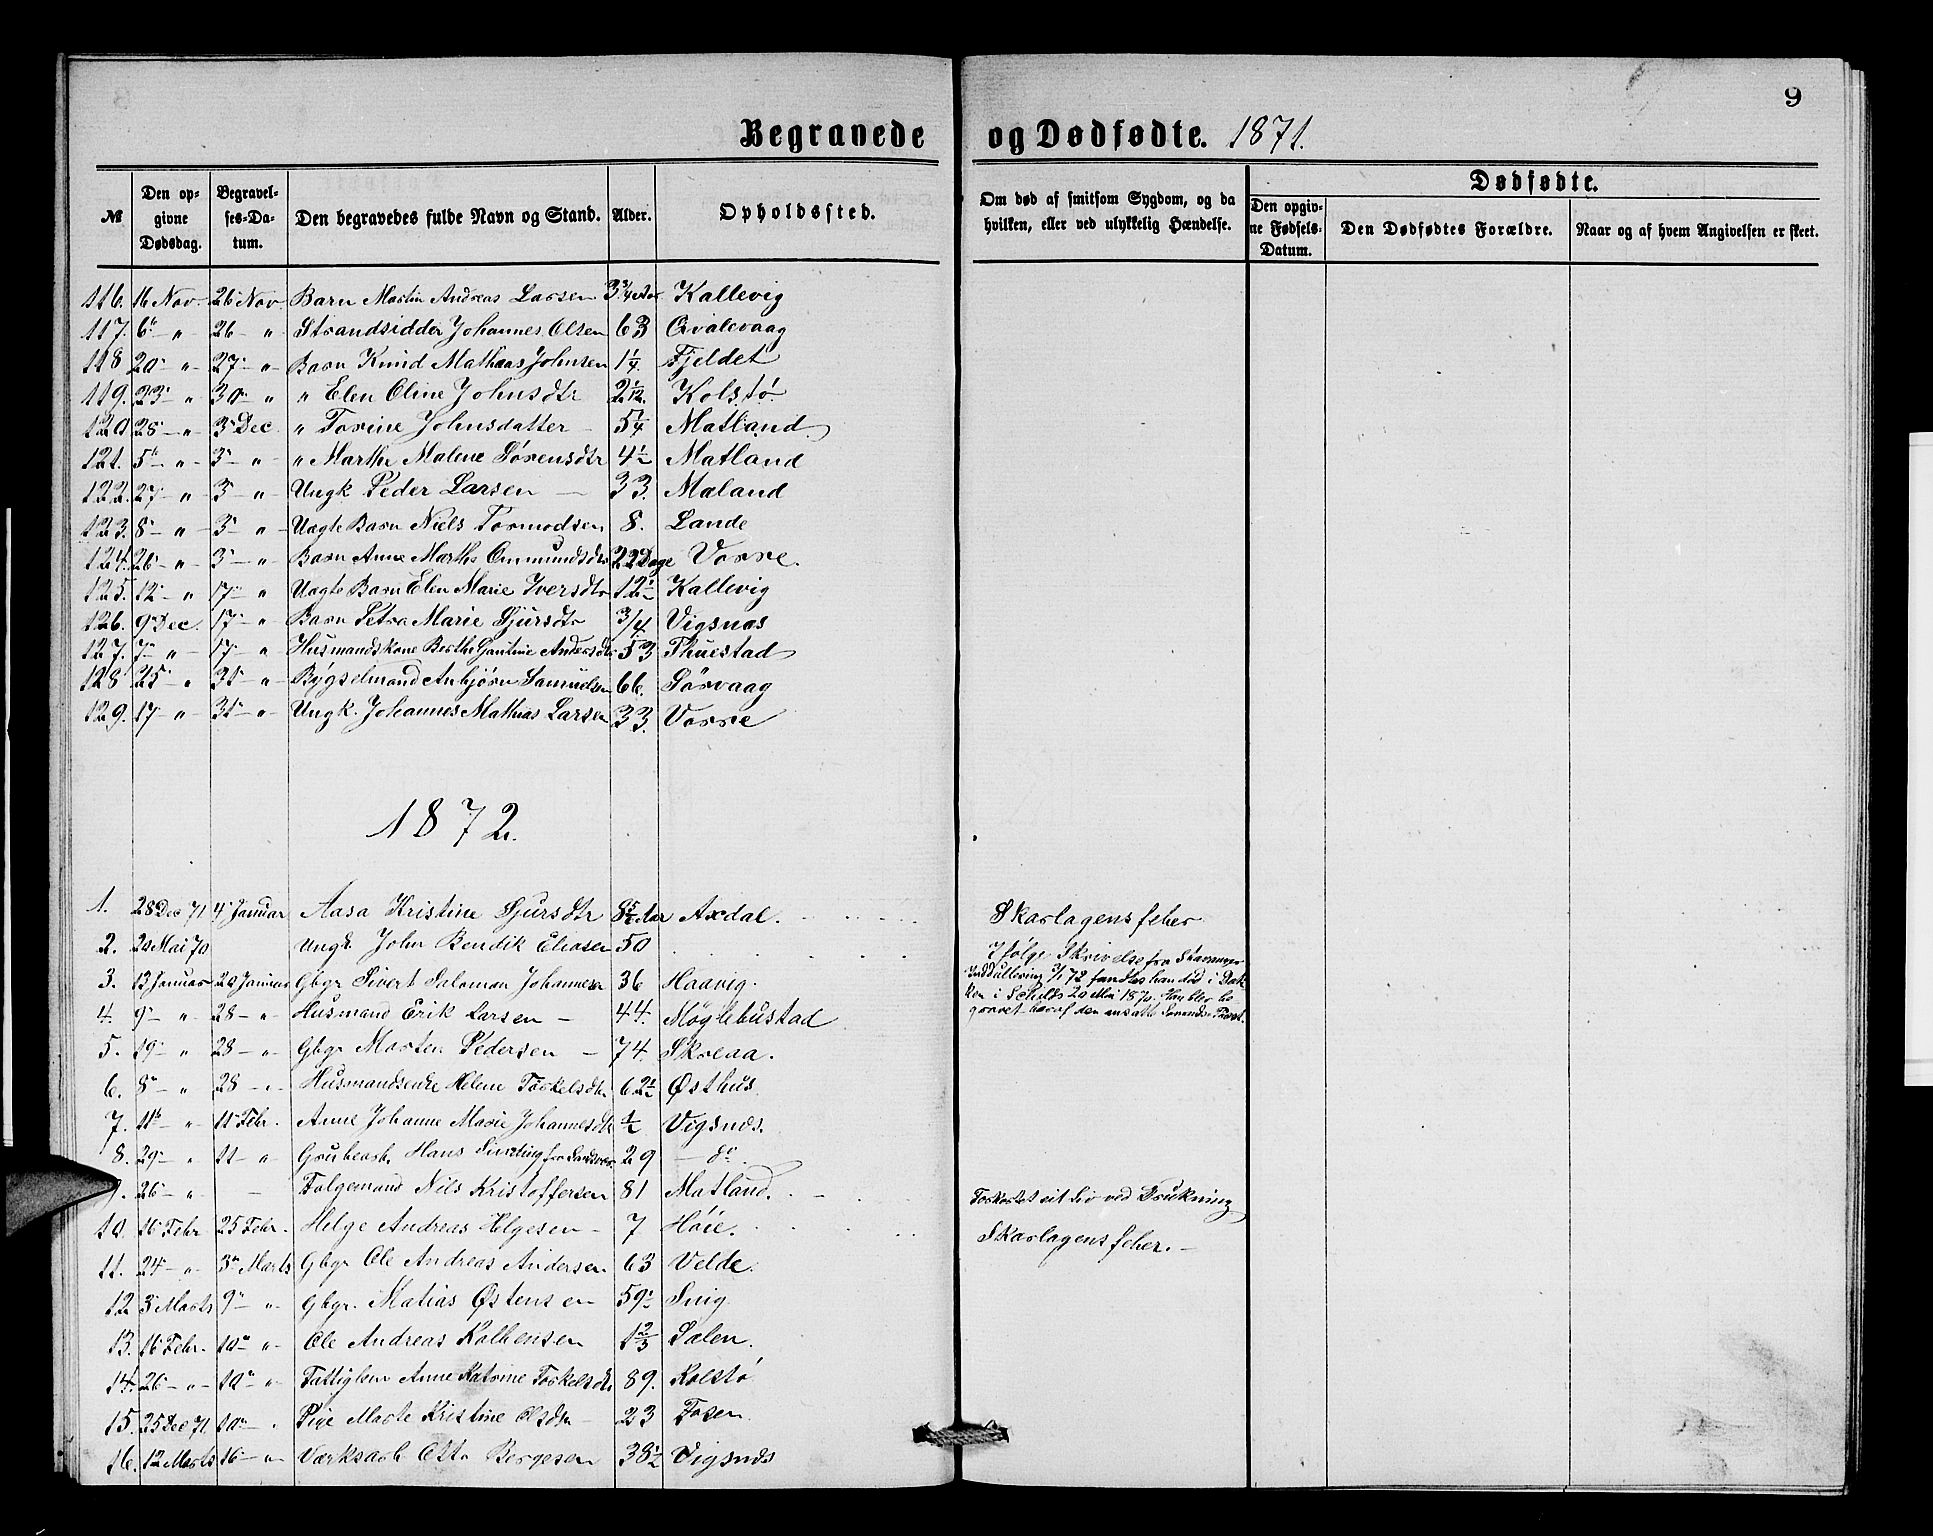 9
Begravede og Dødfødte. 1871.
№ Den opgivne Dødsdag. Begravelses-Datum. Den begravedes fulde Navn og Stand. Alder. Opholdssted. Om død af smitsom Sygdom, og da hvilken, eller ved ulykkelig Hændelse. Dødfødte.
Den opgivne Fødsels-Datum. Den Dødfødtes Forældre. Naar og af hvem Angivelsen er skeet.
116. 16 Nov. 26 Nov Barn Martin Andreas Larsen 3 3/4 Kallevig
117. 6 " 26 " Strandsidder Johannes Olsen 63 Qvalevaag
118 20 " 27 " Barn Knud Mathias Johnsen 1 1/4 Fjeldet
119. 23 " 30 " " Elen Oline Johnsdtr 2 1/12 Kolstø
120 28 " 3 Dec " Torine Johnsdatter 5 1/4 Matland
121. 5 " 3 " " Marthe Malene Sørensdtr 4 1/2 Matland
122. 27 " 3 " Ungk Peder Larsen 33. Mæland
123. 8 " 3 " Uægte Barn Niels Tormodsen 8. Lande
124. 26 " 3 " Barn Anne Marthe Ommundsdtr 22 Dage Vorre.
125. 12 " 17 " Uægte Barn Elen Marie Iversdtr 12 1/2 Kallevig
126. 9 Dec. 17 " Barn Petra Marie Sjursdtr 3/4 Vigsnæs
127. 7 " 17 " Husmandskone Berthe Gautine Andersdtr 53 Thuestad
128 25 " 31 " Bygselmand Anbjørn Samuelsen 66. Sørvaag
129. 17 " 31 " Ungk. Johannes Mathias Larsen 33. Vorre
1872.
1. 28 Dec 71 4 Januar Aasa Kristine Sjursdtr 8 5/12 Aar Axdal. Skarlagensfeber
2. 20 Mai 70 Ungk. John Bendik Eliasen 50 Ifølge Skrivelse fra Stavanger
3. 13 Januar 20 Januar Gbgr Sivert Salomon Johannesen 36 Haavig. Inddullering 3/1 72 fandtes han død i
4. 9 " 28 " Husmand Erik Larsen 44. Møglebustad i 20 Mai 1870. Han blev be
gravet heraf den ansatte
5. 19 " 28 " Gbgr Morten Pedersen 74. Skreaa.
6. 8 " 28 " Husmandsenke Helene Torkelsdtr 62 1/2 Østhus
7. 11 " 11 Febr. Anne Johanne Marie Johannesdtr 1/2 Vigsnæs.
8. 29 " 11 " Grubearb. Hans fra Sandsvær 29 do.
9. 26 " Følgemand Nils Kristoffersen 81 Matland. Forkortet sit Liv ved Drukning
10. 16 Febr 25 Febr. Helge Andreas Helgesen 7 Høie. Skarlagensfeber.
11. 24 " 3 Marts Gbgr Ole Andreas Andersen 63 Velde.
12 3 Marts 9 " Gbgr. Matias Østensen 59 1/2 Snig
13. 16 Febr. 10 " Ole Andreas Kolbensen 1 2/3 Salen.
14. 26 " 10 " Fattiglem Anne Katrine Torkelsdtr 89. Kolstø
15. 25 Dec 71. 10 " Pige Marte Kristine Olsdtr 23 Fosen
16. 12 Marts 16 " Værksarb Otto Bergesen 38 1/2 Vigsnæs